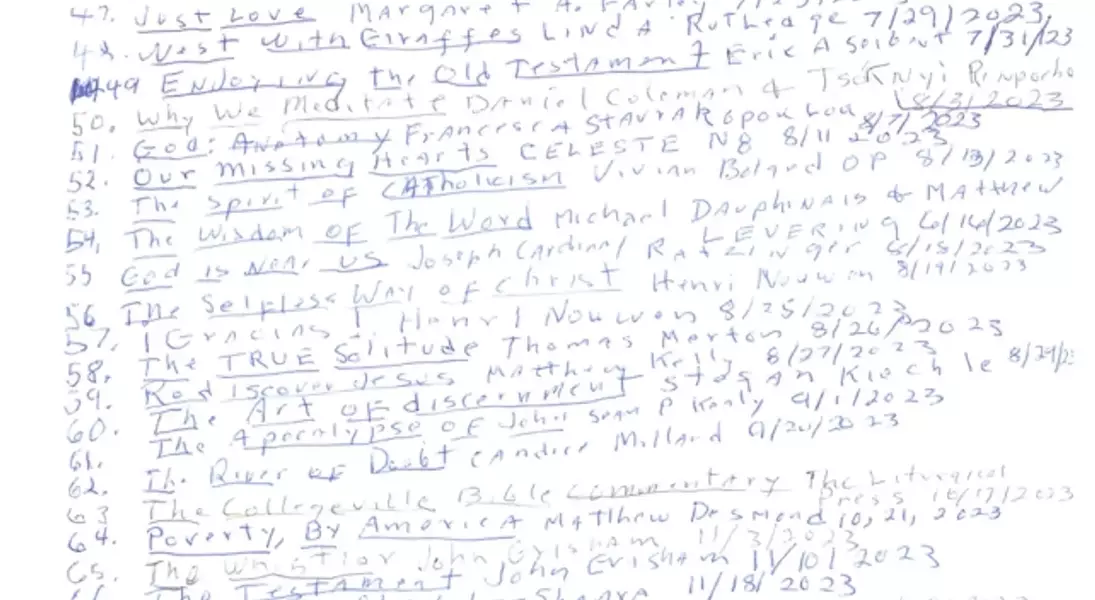 47. Just Love Margaret A. Farley 7/29/2023
48. West With Giraffes Linda Rutledge 7/31/23
49 Enjoying the Old Testament Eric A Seibert
50. Why We Meditate Daniel Goleman & Tsoknyi Rinpoche 8/3/2023
51. God: Anatomy Francesca Stavrakopoulou 8/7/2023
52. Our Missing Hearts CELESTE NG 8/11 2023
53. The Spirit of CATholicism Vivian Boland OP 8/13/2023
54. The Wisdom OF The Word Michael Dauphinais & MATThew LEVERING 6/16/2023
55 God is Near US Joseph Cardinal Ratzinger 8/18/2023
56 The Selfless Way of Christ Henri Nouwen 8/19/2023
57. Gracias! Henri Nouwen 8/25/2023
58. The TRUE Solitude Thomas Merton 8/26/2023
59. Rediscover Jesus Matthew Kelly 8/27/2023
60. The Art OF discernment Stefan Kiechle 8/29/23
61. The Apocalypse OF John Sean P Kealy 9/1/2023
62. The River OF Doubt Candice Millard 9/20/2023
63 The Collegeville Bible Commentary The Liturgical Press 10/17/2023
64. Poverty, By America Matthew Desmond 10, 21, 2023
65. The Whistler John Grisham 11/3/2023
The Testament John Grisham 11/10/2023
11/18/2023